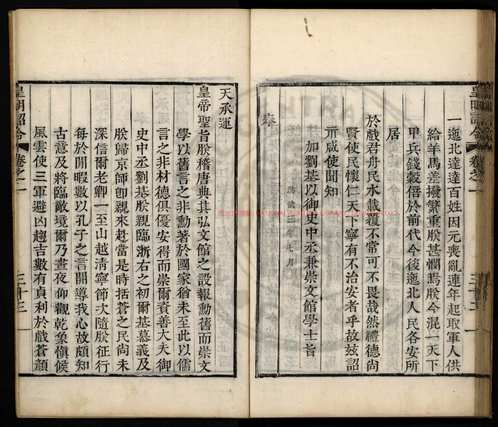 一迤北達達百姓因元喪亂連年起取軍人供
給羊馬差撥繁重朕甚憫焉朕今混一天下
甲兵錢糧倍於前代今後迤北人民各安所
居
於戲君舟民水載覆不常可不畏哉然禮德尚
賢使民懷仁天下寧有不治安者乎故玆詔
示咸使聞知
加劉基以御史中丞兼崇文館學士旨
天承運
皇帝聖旨朕稽唐典其弘文館之設報勳舊而崇文
學以舊言之非勳著於國家猶未至此以儒
言之非才德俱優安得而崇爾資善大夫御
史中丞劉基朕親臨浙右之初爾基慕義及
朕歸京師即親來赴當是時括蒼之民尚未
深信爾老卿一至山越清寧節次隨朕征行
每於閒暇數以孔子之言開導我心故頗知
古意及將臨敵境爾乃晝夜仰觀乾象慎候
風雲使三軍避凶趨吉數有貞利於戲蒼顏
皇明詔令
卷之一
三十三